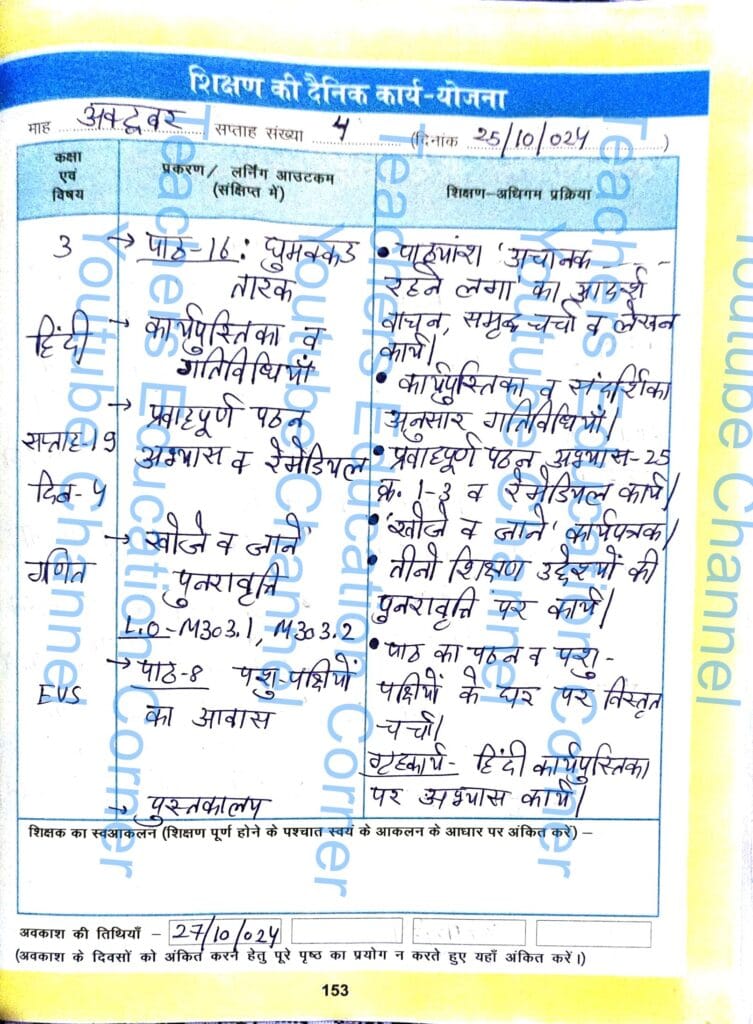 शिक्षण की दैनिक कार्य-योजना
माह अक्टूबर सप्ताह संख्या 4 (दिनांक 25/10/024)
कक्षा एवं विषय
प्रकरण/ लर्निंग आउटकम (संक्षिप्त में)
शिक्षण-अधिगम प्रक्रिया
3
हिंदी
सप्ताह-19
दिन-4
गणित
EVS
→ पाठ-16: घुमक्कड
तारक
→ कार्यपुस्तिका व
गतिविधियाँ
→ प्रवाहपूर्ण पठन
अभ्यास व रेमेडियल
→ 'खोजे व जाने'
पुनरावृत्ति
L.O-M303.1, M303.2
→ पाठ-8 पशु-पक्षियों
का आवास
→ पुस्तकालय
• पाठ्यांश 'अचानक ----
रहने लगा' का आदर्श
वाचन, समूह चर्चा व लेखन
कार्य।
• कार्यपुस्तिका व संदर्शिका
अनुसार गतिविधियाँ।
• प्रवाहपूर्ण पठन अभ्यास-25
क्र. 1-3 व रेमेडियल कार्य।
• 'खोजे व जाने' कार्यपत्रक।
• तीनो शिक्षण उद्देश्यों की
पुनरावृत्ति पर कार्य।
• पाठ का पठन व पशु-
पक्षियों के घर पर विस्तृत
चर्चा।
गृहकार्य- हिंदी कार्यपुस्तिका
पर अभ्यास कार्य।
शिक्षक का स्वआकलन (शिक्षण पूर्ण होने के पश्चात स्वयं के आकलन के आधार पर अंकित करें) –
अवकाश की तिथियाँ – 27/10/024
(अवकाश के दिवसों को अंकित करने हेतु पूरे पृष्ठ का प्रयोग न करते हुए यहाँ अंकित करें।)
153
Teachers Education Corner
Youtube Channel
Teachers Education Corner
Youtube Channel
Teachers Education Corner
Youtube Channel